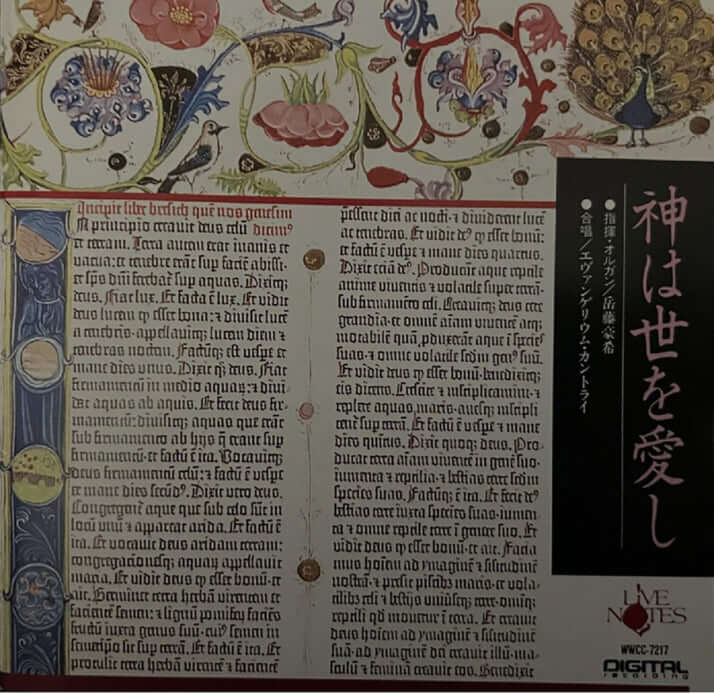 Incipit liber bresich quē nos genesim
dicimꝰ
In principio creavit deus celū
et terram. Terra autem erat inanis et
vacua: et tenebre erāt sup faciē abissi:
et spūs dñi ferebat͛ sup aquas. Dixitqꝫ
deus. Fiat lux. Et facta ē lux. Et vidit
deus lucem ꝙ esset bona: ⁊ divisit lucē
a tenebris. appellavitqꝫ lucem diem ⁊
tenebras noctem. Factūqꝫ est vespe et
mane dies unus. Dixit qꝫ deus. Fiat
firmamentū in medio aquaꝝ: ⁊ divi-
dat aquas ab aquis. Et fecit deus fir-
mamentū: divisitqꝫ aquas que erāt
sub firmamento ab hijs q̄ erant sup
firmamentū. et factū ē ita. Vocavitqꝫ
deus firmamentū celū: ⁊ factū ē vespe
et mane dies secūdꝰ. Dixit vero deus.
Congregent͛ aque que sub celo sūt in
locū unū ⁊ appareat arida. Et factū ē
ita. Et vocavit deus aridam terram:
congregacionesqꝫ aquaꝝ appellavit
maria. Et vidit deus ꝙ esset bonū. et
ait. Germinet terra herbā virentem et
facientē semen: ⁊ lignū pomifeꝝ faciēs
fructū iuxta genus suū. cuiꝰ semen in
semetipso sit sup terrā. Et factū ē ita. Et
protulit terra herbā virentē ⁊ facientē
pessent diei ac nocti. ⁊ dividerent lucē
ac tenebras. Et vidit dꝰ ꝙ esset bonū:
et factū ē vespe ⁊ mane dies quartus.
Dixit eciā dꝰ. Producāt aque reptile
anime viventis ⁊ volatile super terrā:
sub firmamēto celi. Creavitqꝫ deus cete
grandia. et omnē aīam viventē atqꝫ
motabilē quā ꝓduxerāt aque ī species
suas. ⁊ omne volatile secdm genꝰ suū.
Et vidit deus ꝙ esset bonū. benedixitqꝫ
eis dicens. Crescite ⁊ multiplicamini. ⁊
replete aquas maris. avesqꝫ multipli-
cent͛ sup terrā. Et factū ē vespe ⁊ mane
dies quītus. Dixit quoqꝫ deus. Pro-
ducat terra aīam viventē in genē suo.
iumenta ⁊ reptilia. ⁊ bestias terre secdm
species suas. Factūqꝫ ē ita. Et fecit dꝰ
bestias terre iuxta species suas. iumen-
ta ⁊ omne reptile terre ī genere suo. Et
vidit deus ꝙ esset bonū. et ait. Facia-
mus hoīem ad ymaginē ⁊ silitudinē
nostrā. ⁊ presit piscibꝫ maris. et vola-
tilibꝫ celi ⁊ bestijs universeqꝫ terre. omīqꝫ
reptili qd movetur ī terra. Et creavit
deus hoīem ad ymaginē ⁊ silitudinē
suā. ad ymaginē dei creavit illū. ma-
sculū ⁊ feminā creavit eos. Benedixit
神は世を愛し
●指揮・オルガン/岳藤豪希
●合唱/エヴァンゲリウム・カントライ
LIVE
NOTES
WWCC-7217
DIGITAL
recording